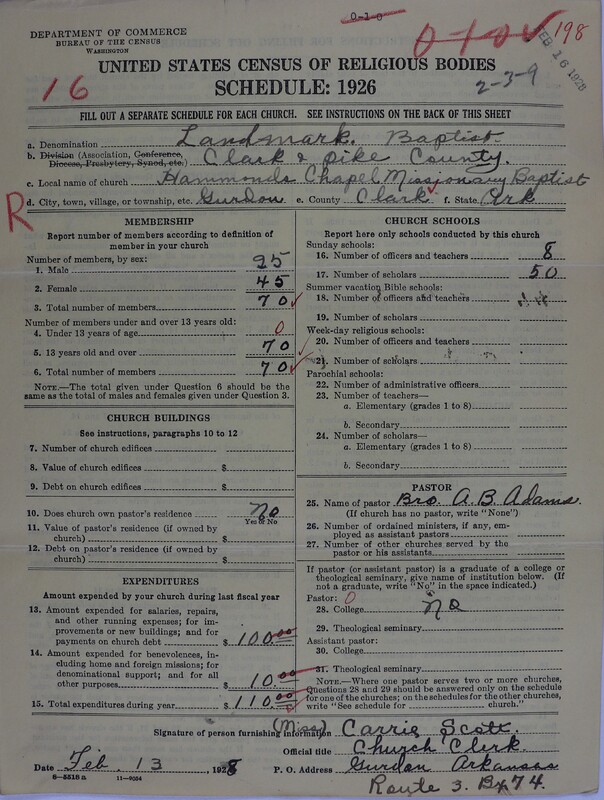 0-1-0
DEPARTMENT OF COMMERCE
BUREAU OF THE CENSUS
WASHINGTON
198
FEB 16 1928
UNITED STATES CENSUS OF RELIGIOUS BODIES
16
SCHEDULE: 1926
2-3-9
FILL OUT A SEPARATE SCHEDULE FOR EACH CHURCH. SEE INSTRUCTIONS ON THE BACK OF THIS SHEET
a. Denomination Landmark Baptist
b. Division (Association, Conference, Diocese, Presbytery, Synod, etc.) Clark & Pike County.
c. Local name of church Hammonds Chapel Missionary Baptist
R
d. City, town, village, or township, etc. Gurdon e. County Clark f. State Ark
MEMBERSHIP
Report number of members according to definition of member in your church
Number of members, by sex:
1. Male 25
2. Female 45
3. Total number of members 70
Number of members under and over 13 years old:
4. Under 13 years of age 0
5. 13 years old and over 70
6. Total number of members 70
NOTE.—The total given under Question 6 should be the same as the total of males and females given under Question 3.
CHURCH BUILDINGS
See instructions, paragraphs 10 to 12
7. Number of church edifices
8. Value of church edifices $
9. Debt on church edifices $
10. Does church own pastor's residence No
Yes or No
11. Value of pastor's residence (if owned by church) $
12. Debt on pastor's residence (if owned by church) $
EXPENDITURES
Amount expended by your church during last fiscal year
13. Amount expended for salaries, repairs, and other running expenses; for improvements or new buildings; and for payments on church debt $ 100.00
14. Amount expended for benevolences, including home and foreign missions; for denominational support; and for all other purposes $ 10.00
15. Total expenditures during year $ 110.00
CHURCH SCHOOLS
Report here only schools conducted by this church
Sunday schools:
16. Number of officers and teachers 8
17. Number of scholars 50
Summer vacation Bible schools:
18. Number of officers and teachers
19. Number of scholars
Week-day religious schools:
20. Number of officers and teachers
21. Number of scholars
Parochial schools:
22. Number of administrative officers
23. Number of teachers—
a. Elementary (grades 1 to 8)
b. Secondary
24. Number of scholars—
a. Elementary (grades 1 to 8)
b. Secondary
PASTOR
25. Name of pastor Bro. A. B. Adams.
(If church has no pastor, write "None")
26. Number of ordained ministers, if any, employed as assistant pastors
27. Number of other churches served by the pastor or his assistants
If pastor (or assistant pastor) is a graduate of a college or theological seminary, give name of institution below. (If not a graduate, write "No" in the space indicated.)
Pastor: 0
28. College no
29. Theological seminary
Assistant pastor:
30. College
31. Theological seminary
NOTE.—Where one pastor serves two or more churches, Questions 28 and 29 should be answered only on the schedule for one of the churches; on the schedules for the other churches, write "See schedule for ______ church."
Signature of person furnishing information (Miss) Carrie Scott.
Official title Church Clerk
Date Feb. 13, 1928 P. O. Address Gurdon Arkansas
8-5518a 11-9054
Route 3. Bx 74.